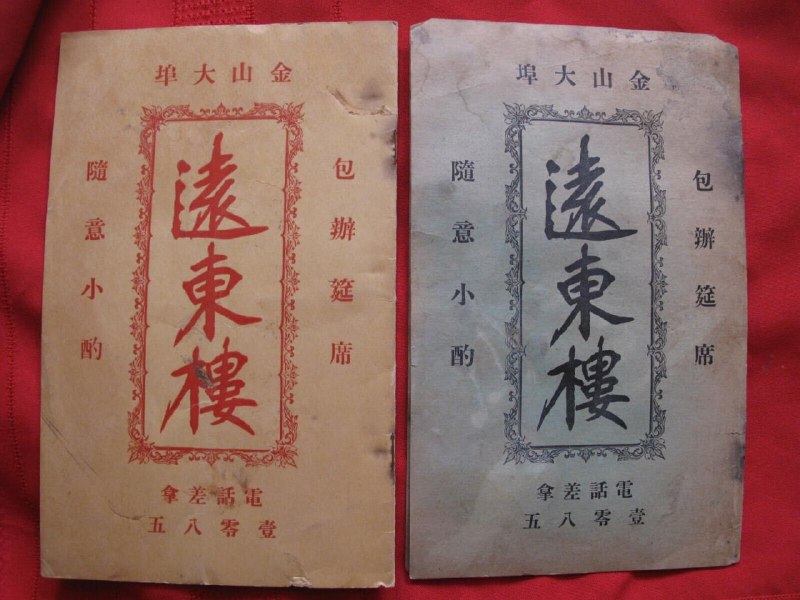 金山大埠
包辦筵席
遠東樓
隨意小酌
電話差拿
壹零八五
金山大埠
包辦筵席
遠東樓
隨意小酌
電話差拿
壹零八五